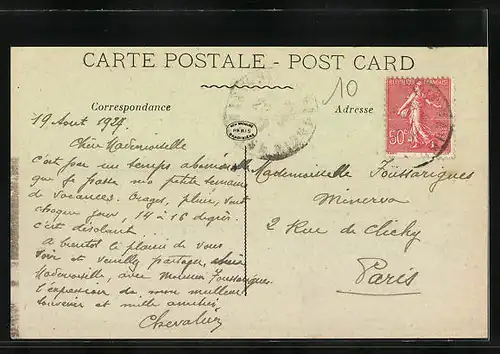 CARTE POSTALE - POST CARD
10
Correspondance
Adresse
50c
PARIS
19 Aout 1927
Chère Mademoiselle
c'est par un temps abominable
que je passe ma petite semaine
de vacances. Orages, pluie, vent
chaque jour, 14 à 16 degrés.
c'est désolant.
A bientôt le plaisir de vous
voir et veuillez partager, chère
Mademoiselle, avec Monsieur Foussarigues
l'expression de mon meilleur
souvenir et mille amitiés
Chevalier
Mademoiselle Foussarigues
Minerva
2 Rue de Clichy
Paris